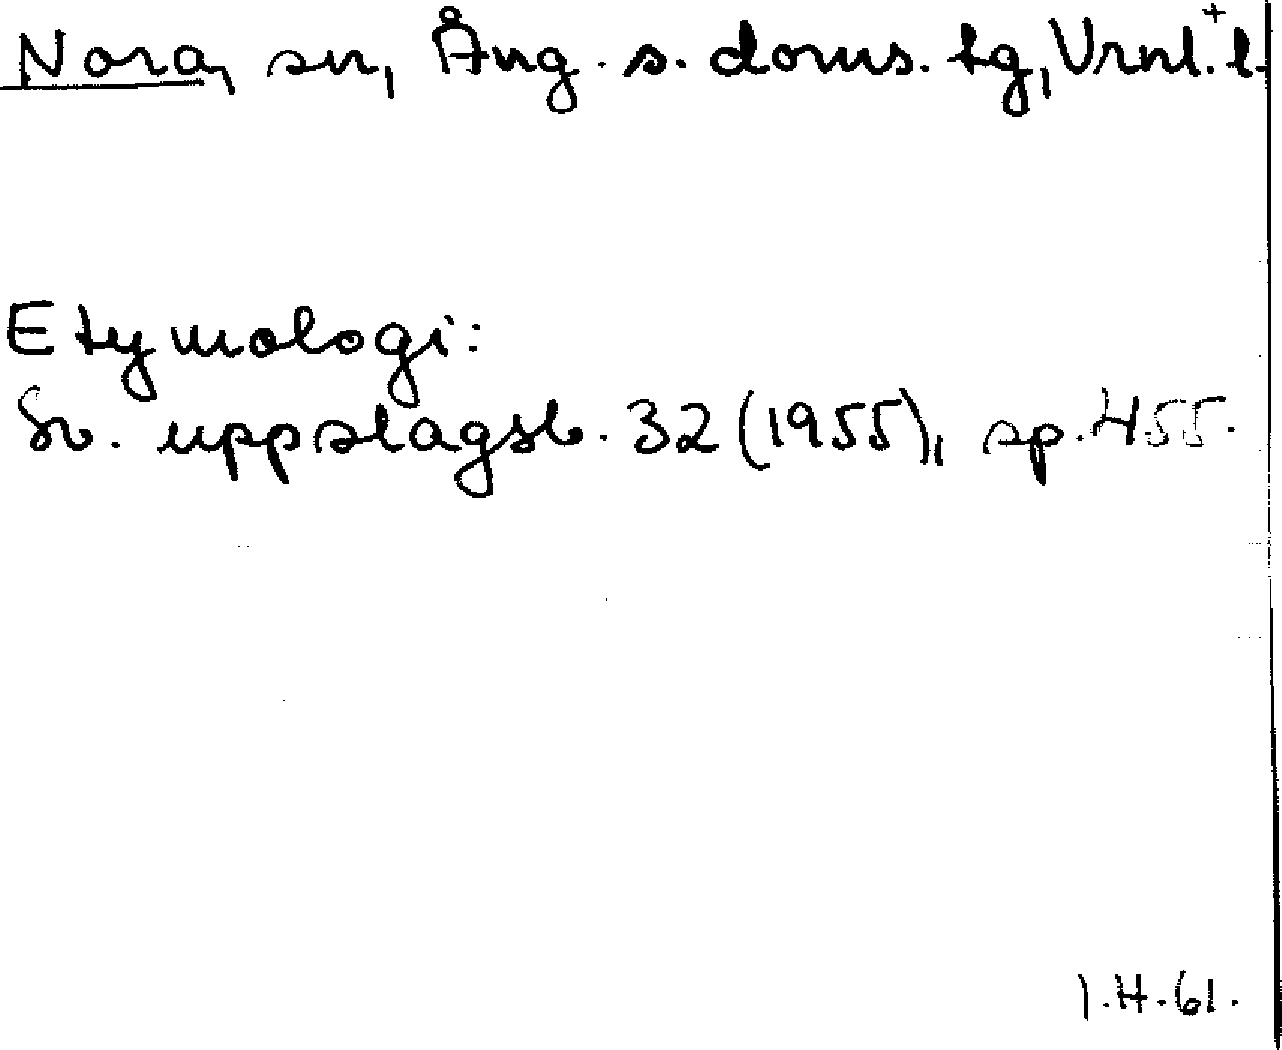 Nora, sn, Ång. s. doms. tg, Vrnl.+ l.
Etymologi:
Sv. uppslagsb. 32 (1955), sp. 455.
I.H.61.